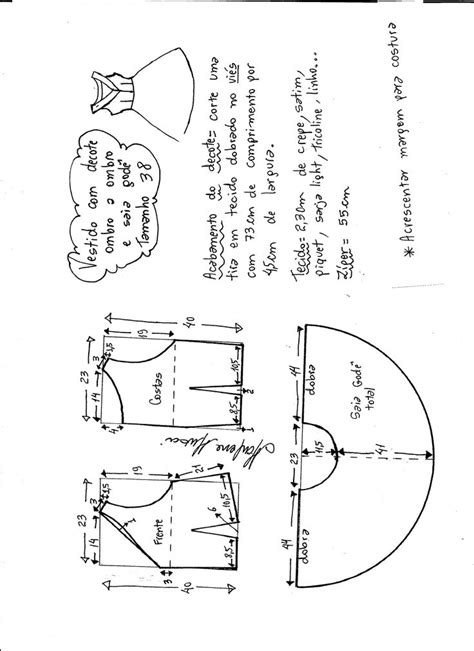 Vestido com decote
ombro a ombro
e saia godê
Tamanho 38
Acabamento do decote= corte uma
tira em tecido dobrado no viés
com 73cm de comprimento por
4,5cm de largura.
Tecido= 2,30m de crepe, satim,
piquet, sarja light, tricoline, linho...
Zíper= 55cm
* Acrescentar margem para costura
23
14
3
1,5
19
40
Frente
1
3
21
6
8,5
10,5
40
Marlene Mukai
23
14
3
1,5
4
19
40
Costas
8,5
10,5
2
1
44
23
44
dobra
dobra
11,5
41
Saia Godê
total